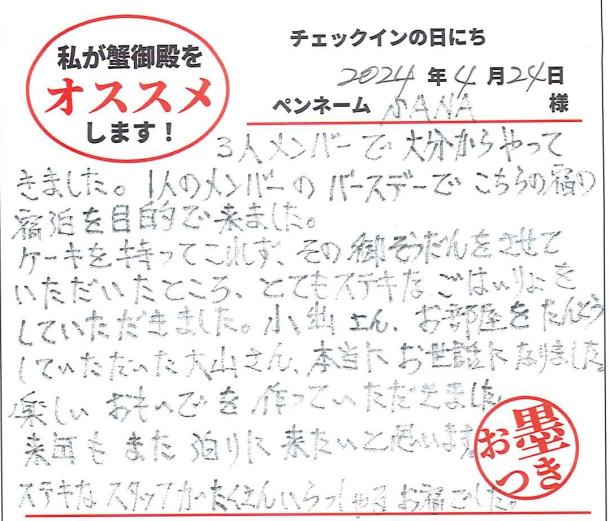 私が蟹御殿を
オススメ
します！
チェックインの日にち
2024年4月24日
ペンネーム SANA 様
3人メンバーで大分からやって
きました。1人のメンバーのバースデーでこちらの宿の
宿泊を目的で来ました。
ケーキを持ってこれず、その御そうだんをさせて
いただいたところ、とてもステキなごはいりょを
していただきました。小出さん、お部屋をたんとう
していただいた大山さん、本当にお世話になりました。
楽しいおもいでを作っていただきました。
来年もまた泊りに来たいと思います。
ステキなスタッフがたくさんいらっしゃるお宿でした。
お墨つき